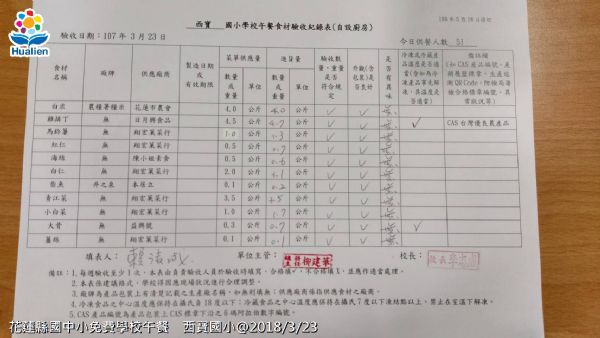 Hualien
西寶 國小學校午餐食材驗收紀錄表(自設廚房)
驗收日期：107 年 3 月 23 日
今日供餐人數 51
食材名稱 廠牌 供應廠商 製造日期或有效期限 菜單供應量 進貨量 驗收數量、重量是否符合規定 外觀(含包裝)是否良好 是否有異味
數量或重量 單位 數量或重量 單位
白米 農糧署糧米 花蓮市農會 4.0 公斤 4.0 公斤 ✓ ✓
雞腿丁 無 日月興食品 4.5 公斤 4.7 公斤 ✓ ✓ ✓ CAS 台灣優良農產品
馬鈴薯 無 翔宏菜菜行 1.0 公斤 1.3 公斤 ✓ ✓
紅仁 無 翔宏菜菜行 0.5 公斤 0.7 公斤 ✓ ✓
海絲 無 陳小姐素食 0.5 公斤 0.6 公斤 ✓ ✓
白仁 無 翔宏菜菜行 2.0 公斤 公斤 ✓ ✓
柴魚 井之泉 本居立 0.1 公斤 0.2 公斤 ✓ ✓
青江菜 無 翔宏菜菜行 3.5 公斤 公斤 ✓ ✓
小白菜 無 翔宏菜菜行 1.0 公斤 1.7 公斤 ✓ ✓
大骨 無 益興號 0.3 公斤 0.7 公斤 ✓ ✓ ✓
薑絲 無 翔宏菜菜行 0.1 公斤 0.1 公斤 ✓ ✓
填表人： 單位主管： 柳建華 校長： 校長
備註：1.每週驗收至少1次，本表由負責驗收人員於驗收時填寫，合格填✓，不合格填X，並應作適當處理。
2.本表係建議格式，學校得因應現場狀況進行合理調整。
3.廠牌為產品包裝上有清楚記載的生產廠名稱，如無則填無；供應廠商係指供應食材之廠商。
4.冷凍食品之中心溫度應保持在攝氏負18度以下；冷藏食品之中心溫度應保持在攝氏7度以下凍結點以上，禁止在室溫下解凍。
5.CAS產品編號為產品包裝上CAS標章下沿之6碼阿拉伯數字編號。
花蓮縣國中小免費學校午餐 西寶國小@2018/3/23